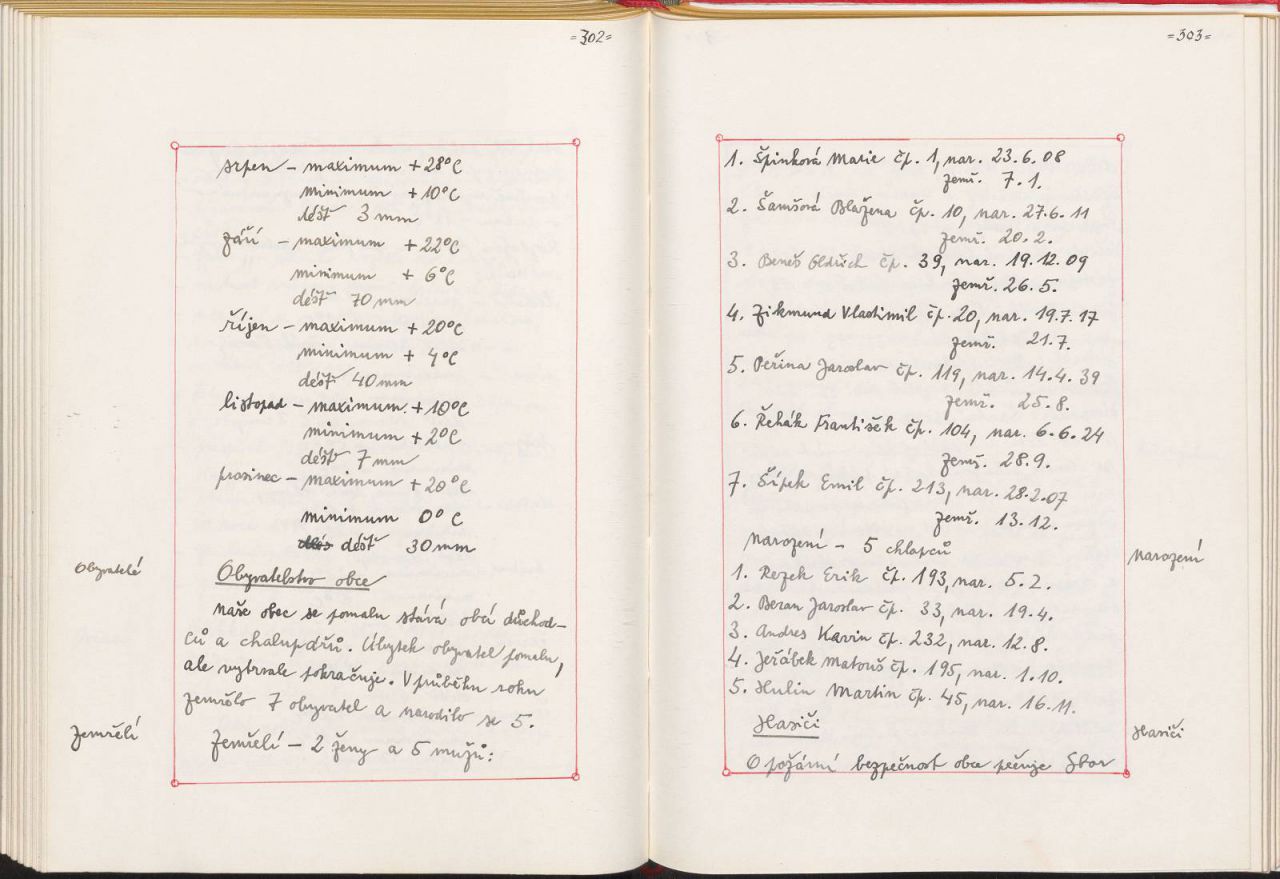 =302=
srpen – maximum +28°C
minimum +10°C
déšť 3 mm
září – maximum +22°C
minimum + 6°C
déšť 70 mm
říjen – maximum +20°C
minimum + 4°C
déšť 40 mm
listopad – maximum +10°C
minimum +2°C
déšť 7 mm
prosinec – maximum +20°C
minimum 0°C
déšť 30 mm
Obyvatelé
Obyvatelstvo obce
Naše obec se pomalu stává obcí důchod-
ců a chalupářů. Úbytek obyvatel pomalu,
ale vytrvale pokračuje. V průběhu roku
zemřelo 7 obyvatel a narodilo se 5.
Zemřelí
Zemřelí – 2 ženy a 5 mužů:
=303=
1. Špinková Marie čp. 1, nar. 23.6.08
zemř. 7.1.
2. Šamšová Blažena čp. 10, nar. 27.6.11
zemř. 20.2.
3. Beneš Oldřich čp. 39, nar. 19.12.09
zemř. 26.5.
4. Zikmund Vlastimil čp. 20, nar. 19.7.17
zemř. 21.7.
5. Peřina Jaroslav čp. 119, nar. 14.4.39
zemř. 25.8.
6. Řehák František čp. 104, nar. 6.6.24
zemř. 28.9.
7. Šípek Emil čp. 213, nar. 28.2.07
zemř. 13.12.
Narození – 5 chlapců
Narození
1. Rezek Erik čp. 193, nar. 5.2.
2. Beran Jaroslav čp. 33, nar. 19.4.
3. Andres Karin čp. 232, nar. 12.8.
4. Jeřábek Matouš čp. 195, nar. 1.10.
5. Hulin Martin čp. 45, nar. 16.11.
Hasiči
Hasiči
O požární bezpečnost obce pečuje Sbor